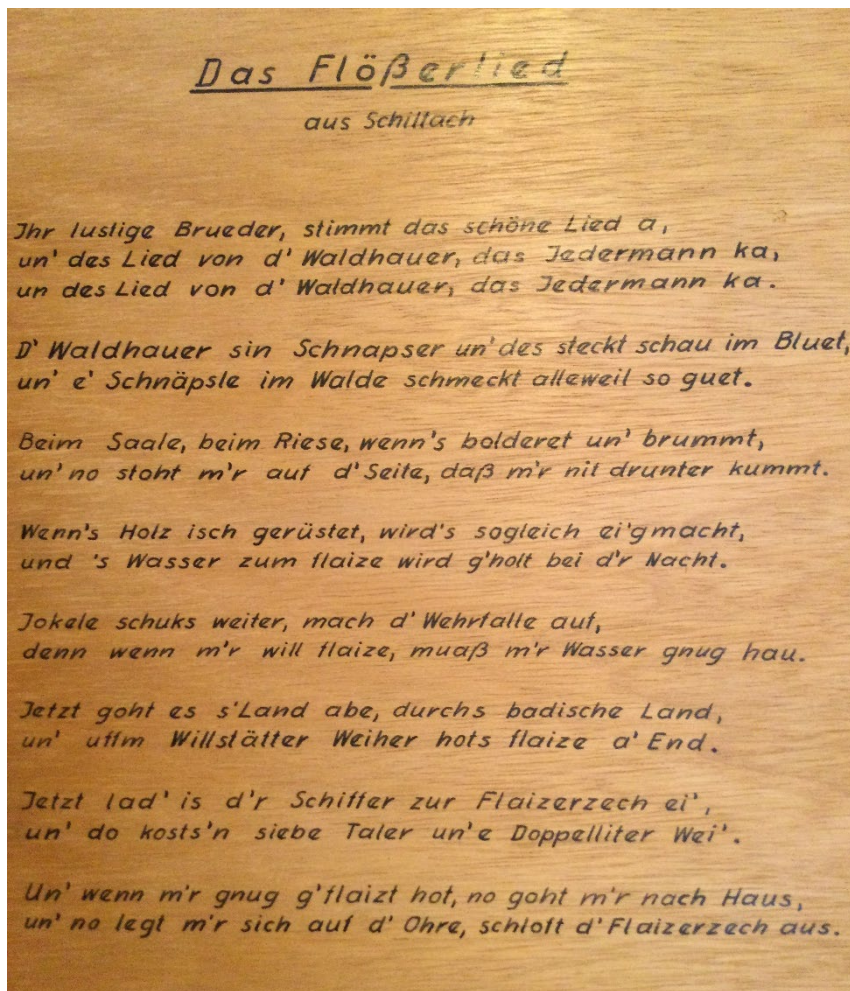 Das Flößerlied
aus Schiltach
Ihr lustige Brueder, stimmt das schöne Lied a,
un' des Lied von d' Waldhauer, das Jedermann ka,
un des Lied von d' Waldhauer, das Jedermann ka.
D' Waldhauer sin Schnapser un' des steckt schau im Bluet,
un' e' Schnäpsle im Walde schmeckt alleweil so guet.
Beim Saale, beim Riese, wenn's bolderet un' brummt,
un' no stoht m'r auf d' Seite, daß m'r nit drunter kummt.
Wenn's Holz isch gerüstet, wird's sogleich ei'gmacht,
und 's Wasser zum flaize wird g'holt bei d'r Nacht.
Jokele schuks weiter, mach d' Wehrfalle auf,
denn wenn m'r will flaize, muaß m'r Wasser gnug hau.
Jetzt goht es s'Land abe, durchs badische Land,
un' uffm Willstätter Weiher hots flaize a' End.
Jetzt lad' is d'r Schiffer zur Flaizerzech ei',
un' do kosts'n siebe Taler un' e Doppelliter Wei'.
Un' wenn m'r gnug g'flaizt hot, no goht m'r nach Haus,
un' no legt m'r sich auf d' Ohre, schloft d' Flaizerzech aus.